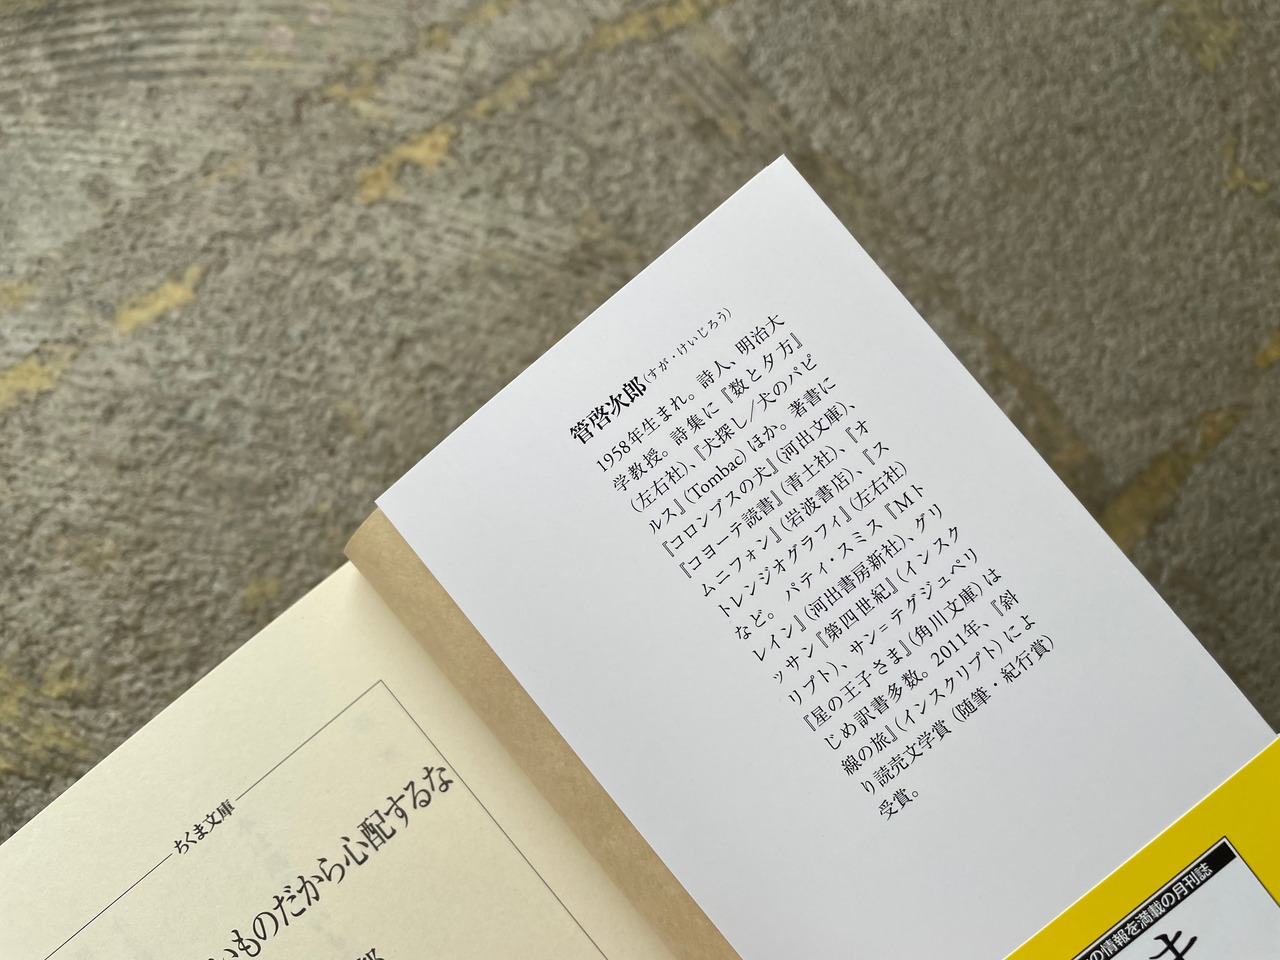 管啓次郎(すが・けいじろう)
1958年生まれ。詩人、明治大
学教授。詩集に『数と夕方』
(左右社)、『犬探し／犬のパピ
ルス』(Tombac)ほか。著書に
『コロンブスの犬』(河出文庫)、
『コヨーテ読書』(青土社)、『オ
ムニフォン』(岩波書店)、『ス
トレンジオグラフィ』(左右社)
など。パティ・スミス『Mト
レイン』(河出書房新社)、グリ
ッサン『第四世紀』(インスク
リプト)、サン＝テグジュペリ
『星の王子さま』(角川文庫)は
じめ訳書多数。2011年、『斜
線の旅』(インスクリプト)によ
り読売文学賞(随筆・紀行賞)
受賞。
ちくま文庫
いものだから心配するな
郎
の情報を満載の月刊誌